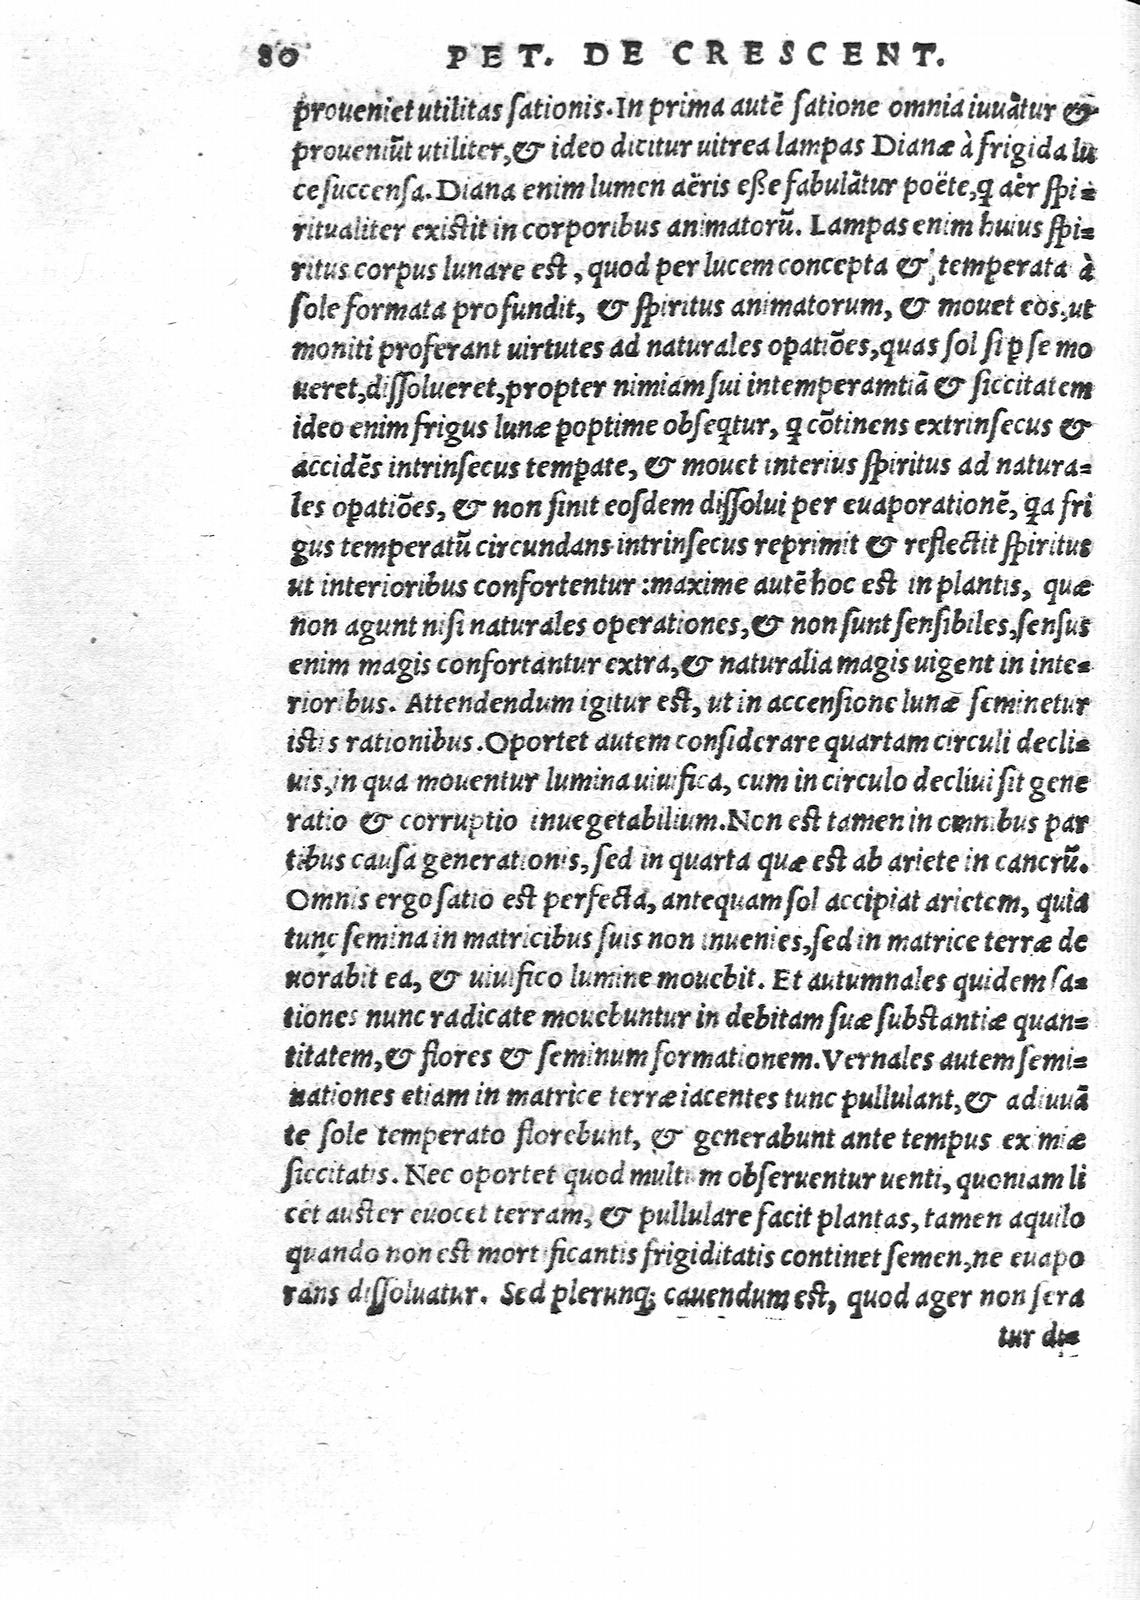 80 PET. DE CRESCENT.
proueniet utilitas ſationis. In prima autē ſatione omnia iuuātur &
proueniūt utiliter, & ideo dicitur uitrea lampas Dianæ à frigida lu
ce ſuccenſa. Diana enim lumen aëris eſſe fabulātur poëte, ꝗ aër ſpi=
ritualiter exiſtit in corporibus animatorū. Lampas enim huius ſpi=
ritus corpus lunare eſt, quod per lucem concepta & temperata à
ſole formata profundit, & ſpiritus animatorum, & mouet eos, ut
moniti proferant uirtutes ad naturales oꝑatiōes, quas ſol ſi ꝑ ſe mo
ueret, diſſolueret, propter nimiam ſui intemperamtiā & ſiccitatem
ideo enim frigus lunæ ꝑoptime obſeꝗtur, ꝗ cōtinens extrinſecus &
accidēs intrinſecus temꝑate, & mouet interius ſpiritus ad natura=
les oꝑatiōes, & non ſinit eoſdem diſſolui per euaporationē, ꝗa fri
gus temperatū circundans intrinſecus reprimit & reflectit ſpiritus
ut interioribus confortentur: maxime autē hoc eſt in plantis, quæ
non agunt niſi naturales operationes, & non ſunt ſenſibiles, ſenſus
enim magis confortantur extra, & naturalia magis uigent in inte=
rioribus. Attendendum igitur eſt, ut in accenſione lunæ ſeminetur
iſtis rationibus. Oportet autem conſiderare quartam circuli decli=
uis, in qua mouentur lumina uiuifica, cum in circulo decliui ſit gene
ratio & corruptio in uegetabilium. Non eſt tamen in omnibus par
tibus cauſa generationis, ſed in quarta quæ eſt ab ariete in cancrū.
Omnis ergo ſatio eſt perfecta, antequam ſol accipiat arietem, quia
tunc ſemina in matricibus ſuis non inuenies, ſed in matrice terræ de
uorabit ea, & uiuifico lumine mouebit. Et autumnales quidem ſa=
tiones nunc radicate mouebuntur in debitam ſuæ ſubſtantiæ quan=
titatem, & flores & ſeminum formationem. Vernales autem ſemi=
nationes etiam in matrice terræ iacentes tunc pullulant, & adiuuā
te ſole temperato florebunt, & generabunt ante tempus eximiæ
ſiccitatis. Nec oportet quod multum obſeruentur uenti, quoniam li
cet auſter euocet terram, & pullulare facit plantas, tamen aquilo
quando non eſt mortificantis frigiditatis continet ſemen, ne euapo
rans diſſoluatur. Sed plerunq; cauendum eſt, quod ager non ſera
tur di=